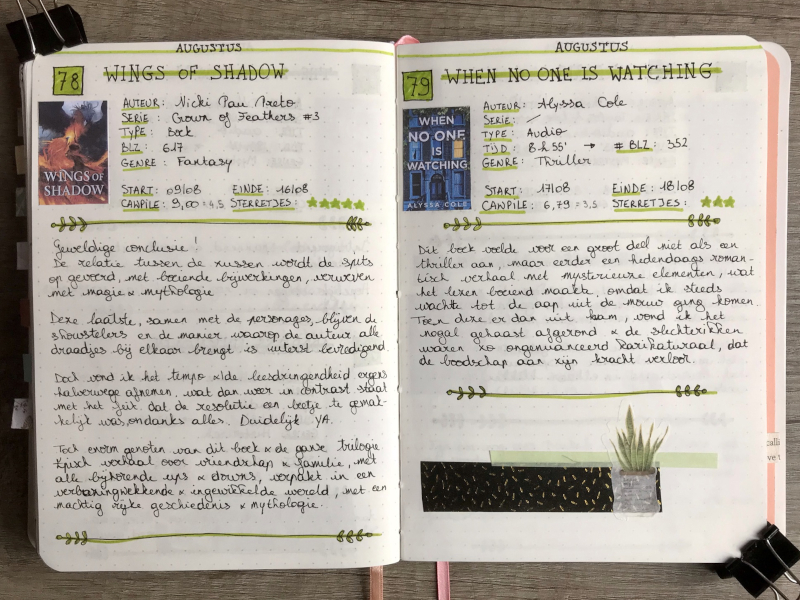 AUGUSTUS
78 WINGS OF SHADOW
WINGS OF
SHADOW
AUTEUR: Nicki Pau Preto
SERIE: Crown of Feathers #3
TYPE: Boek
BLZ: 617
GENRE: Fantasy
START: 09/08 EINDE: 16/08
CAWPILE: 9,00 = 4,5 STERRETJES:
Geweldige conclusie!
De relatie tussen de zussen wordt de spits
op gevoerd, met boeiende bijwerkingen, verweven
met magie & mythologie.
Deze laatste, samen met de personages, blijven de
showstelers en de manier waarop de auteur alle
draadjes bij elkaar brengt is uiterst bevredigend.
Doch vond ik het tempo &/de leesdringendheid ergens
halverwege afnemen, wat dan weer in contrast staat
met het feit dat de resolutie een beetje te gemak-
kelijk was, ondanks alles. Duidelijk YA.
Toch enorm genoten van dit boek & de ganse trilogie.
Episch verhaal over vriendschap & familie, met
alle bijhorende ups & downs, verpakt in een
verbazingwekkende & ingewikkelde wereld, met een
machtig rijke geschiedenis & mythologie.
AUGUSTUS
79 WHEN NO ONE IS WATCHING
WHEN
NO ONE
IS
WATCHING
ALYSSA COLE
AUTEUR: Alyssa Cole
SERIE: /
TYPE: Audio
TIJD: 8h 55' → # BLZ: 352
GENRE: Thriller
START: 17/08 EINDE: 18/08
CAWPILE: 6,79 = 3,5 STERRETJES:
Dit boek voelde voor een groot deel niet als een
thriller aan, maar eerder een hedendaags roman-
tisch verhaal met mysterieuze elementen, wat
het lezen boeiend maakte, omdat ik steeds
wachtte tot de aap uit de mouw ging komen.
Toen deze er dan uit kwam, vond ik het
nogal gehaast afgerond & de slechteriken
waren zo ongenuanceerd karikaturaal, dat
de boodschap aan zijn kracht verloor.